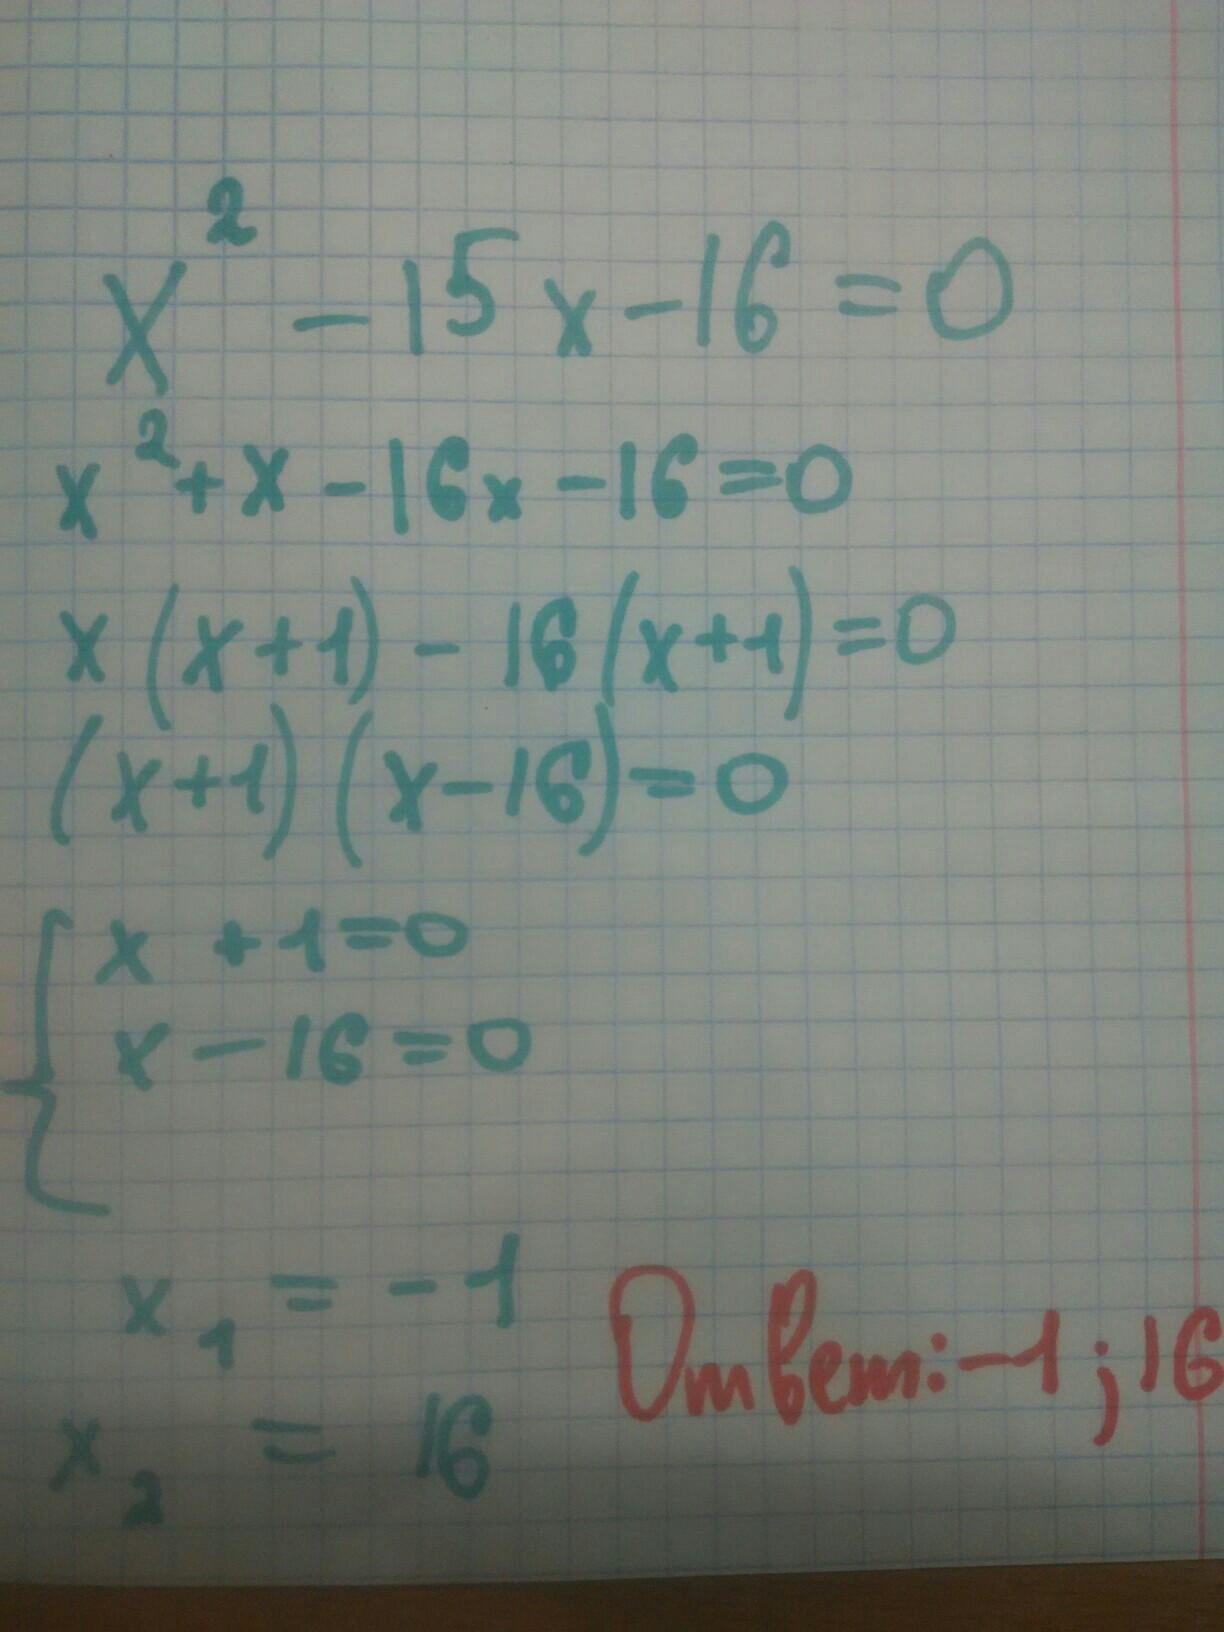 x² - 15x - 16 = 0
x² + x - 16x - 16 = 0
x(x+1) - 16(x+1) = 0
(x+1)(x-16) = 0
{ x + 1 = 0
x - 16 = 0
x₁ = -1
x₂ = 16
Ответ: -1; 16